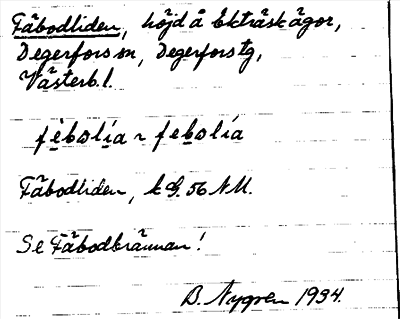 Fäbodliden, höjd å Ekträskägor,
Degerfors sn, Degerfors tg,
Västerb. l.
fèbolía ~ febolía
Fäbodliden, k G. 56 NU.
Se Fäbodbrännan!
B. Nygren 1934.